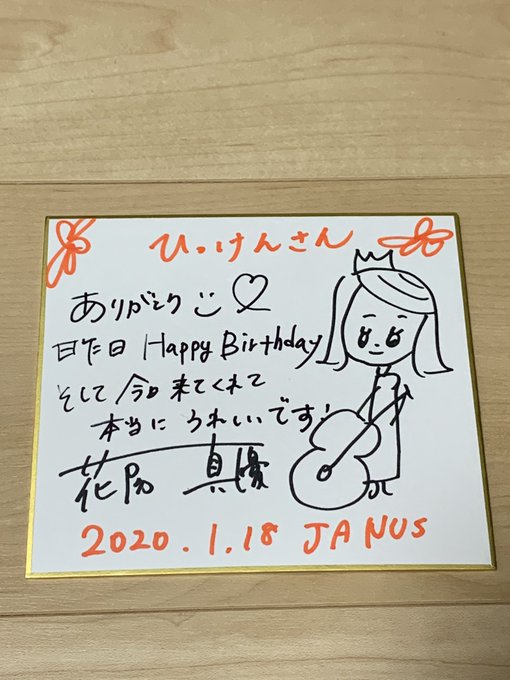 ひっけんさん
ありがとう
昨日 Happy Birthday
そして 今日 来てくれて
本当に うれしいです!
花陽 真優
2020.1.18 JANUS